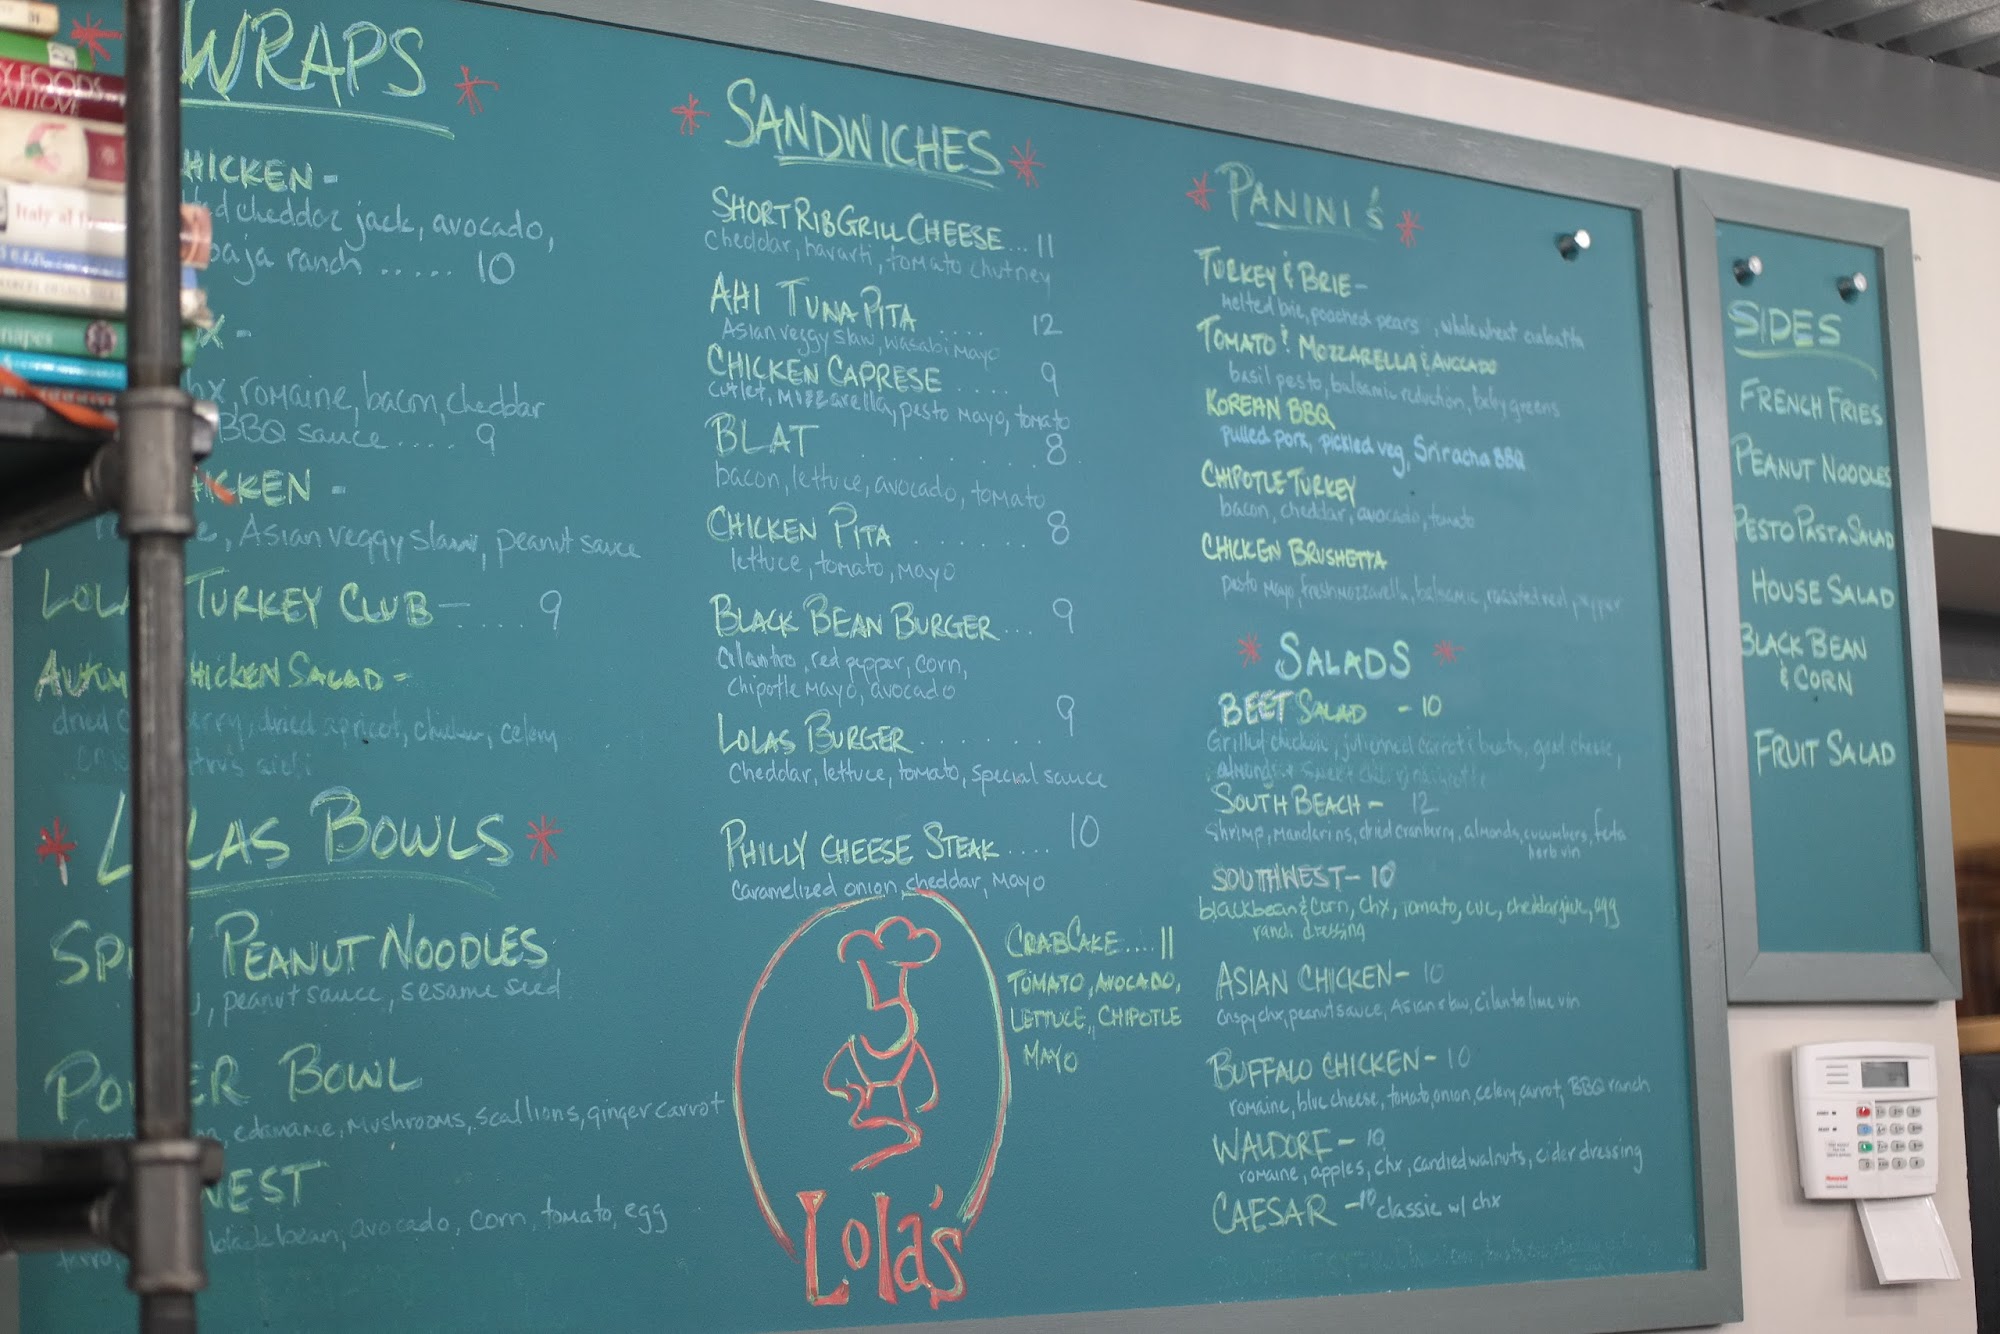 Y FOODS
Italy al
napes
WRAPS
HICKEN -
cheddar jack, avocado,
baja ranch ..... 10
X -
romaine, bacon, cheddar
BBQ sauce .... 9
CKEN -
, Asian veggy slaw, peanut sauce
LOLA TURKEY CLUB - .... 9
AUTUM HICKEN SALAD -
dried erry, dried apricot, chicken, celery
LOLAS BOWLS
SPI Y PEANUT NOODLES
, peanut sauce, sesame seed
PO ER BOWL
, edamame, mushrooms, scallions, ginger carrot
WEST
black bean, avocado, corn, tomato, egg
SANDWICHES
SHORT RIB GRILL CHEESE ... 11
cheddar, havarti, tomato chutney
AHI TUNA PITA .... 12
Asian veggy slaw, wasabi mayo
CHICKEN CAPRESE .... 9
cutlet, mozzarella, pesto mayo, tomato
BLAT .......... 8
bacon, lettuce, avocado, tomato
CHICKEN PITA ....... 8
lettuce, tomato, mayo
BLACK BEAN BURGER ... 9
cilantro, red pepper, corn,
chipotle mayo, avocado
LOLAS BURGER ........ 9
cheddar, lettuce, tomato, special sauce
PHILLY CHEESE STEAK .... 10
caramelized onion, cheddar, mayo
CRABCAKE .... 11
TOMATO, AVOCADO,
LETTUCE, CHIPOTLE
MAYO
Lola's
PANINI'S
TURKEY & BRIE -
melted brie, poached pears, whole wheat ciabatta
TOMATO & MOZZARELLA & AVOCADO
basil pesto, balsamic reduction, baby greens
KOREAN BBQ
pulled pork, pickled veg, Sriracha BBQ
CHIPOTLE TURKEY
bacon, cheddar, avocado, tomato
CHICKEN BRUSHETTA
pesto mayo, fresh mozzarella, balsamic, roasted red pepper
SALADS
BEET SALAD - 10
Grilled chicken, julienned carrot & beets, goat cheese,
almonds & sweet chili vinaigrette
SOUTH BEACH - 12
shrimp, mandarins, dried cranberry, almonds, cucumbers, feta
herb vin
SOUTHWEST - 10
black bean & corn, chx, tomato, cuc, cheddar jack, egg
ranch dressing
ASIAN CHICKEN - 10
crispy chx, peanut sauce, Asian slaw, cilantro lime vin
BUFFALO CHICKEN - 10
romaine, blue cheese, tomato, onion, celery, carrot, BBQ ranch
WALDORF - 10
romaine, apples, chx, candied walnuts, cider dressing
CAESAR - 10 classic w/ chx
SIDES
FRENCH FRIES
PEANUT NOODLES
PESTO PASTA SALAD
HOUSE SALAD
BLACK BEAN
& CORN
FRUIT SALAD
Honeywell